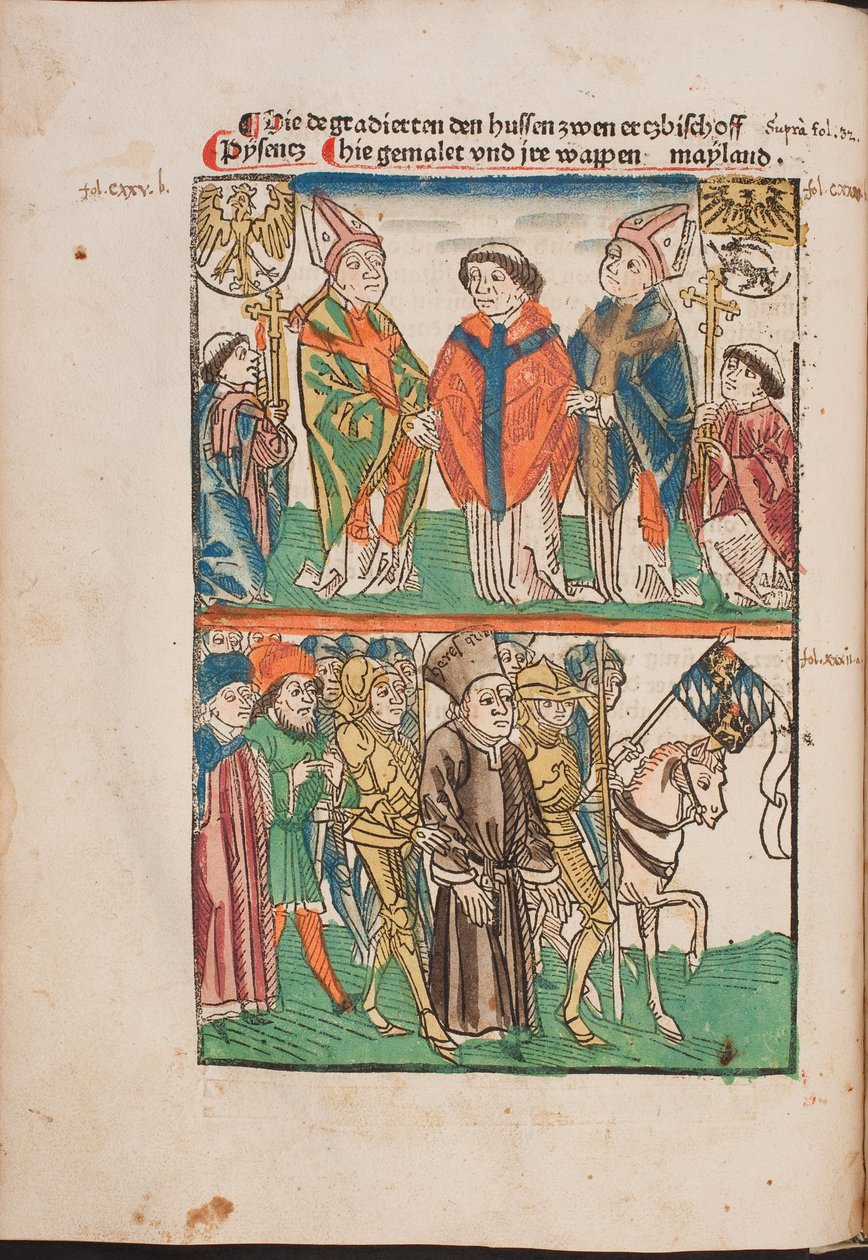 Hie degradierten den hussen zwen ertzbischoff
Supra fol. 32.
Pysentz hie gemalet vnd jre wappen mayland.
fol. cxxv. b.
fol. cxx
heresi
fol. xxxii. a